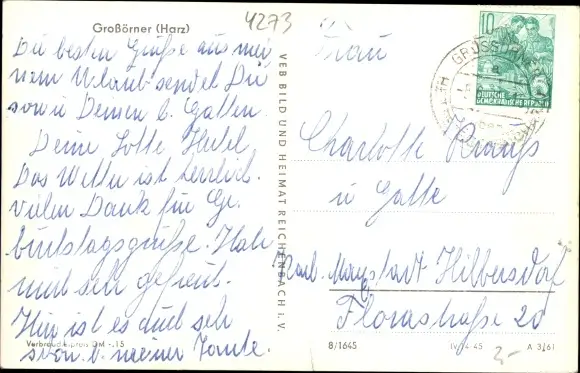 Großörner (Harz)
4273
Die besten Grüße aus mei
nem Urlaub sendet Dir
sowie Deinem l. Gatten
Deine Lotte
Das Wetter ist herrlich.
vielen Dank für Ge
burtstagsgrüße. Habe
mich sehr gefreut.
Hier ist es auch sehr
schön b. meiner Tante.
Verbraucherpreis DM -,15
VEB BILD UND HEIMAT REICHENBACH i. V.
10
DEUTSCHE
DEMOKRATISCHE REPUBLIK
Frau
Charlotte Krauß
u Gatte
Karl-Marx-Stadt Hilbersdorf
Florastraße 20
8/1645
IV/14/45
A 3/61
2,-